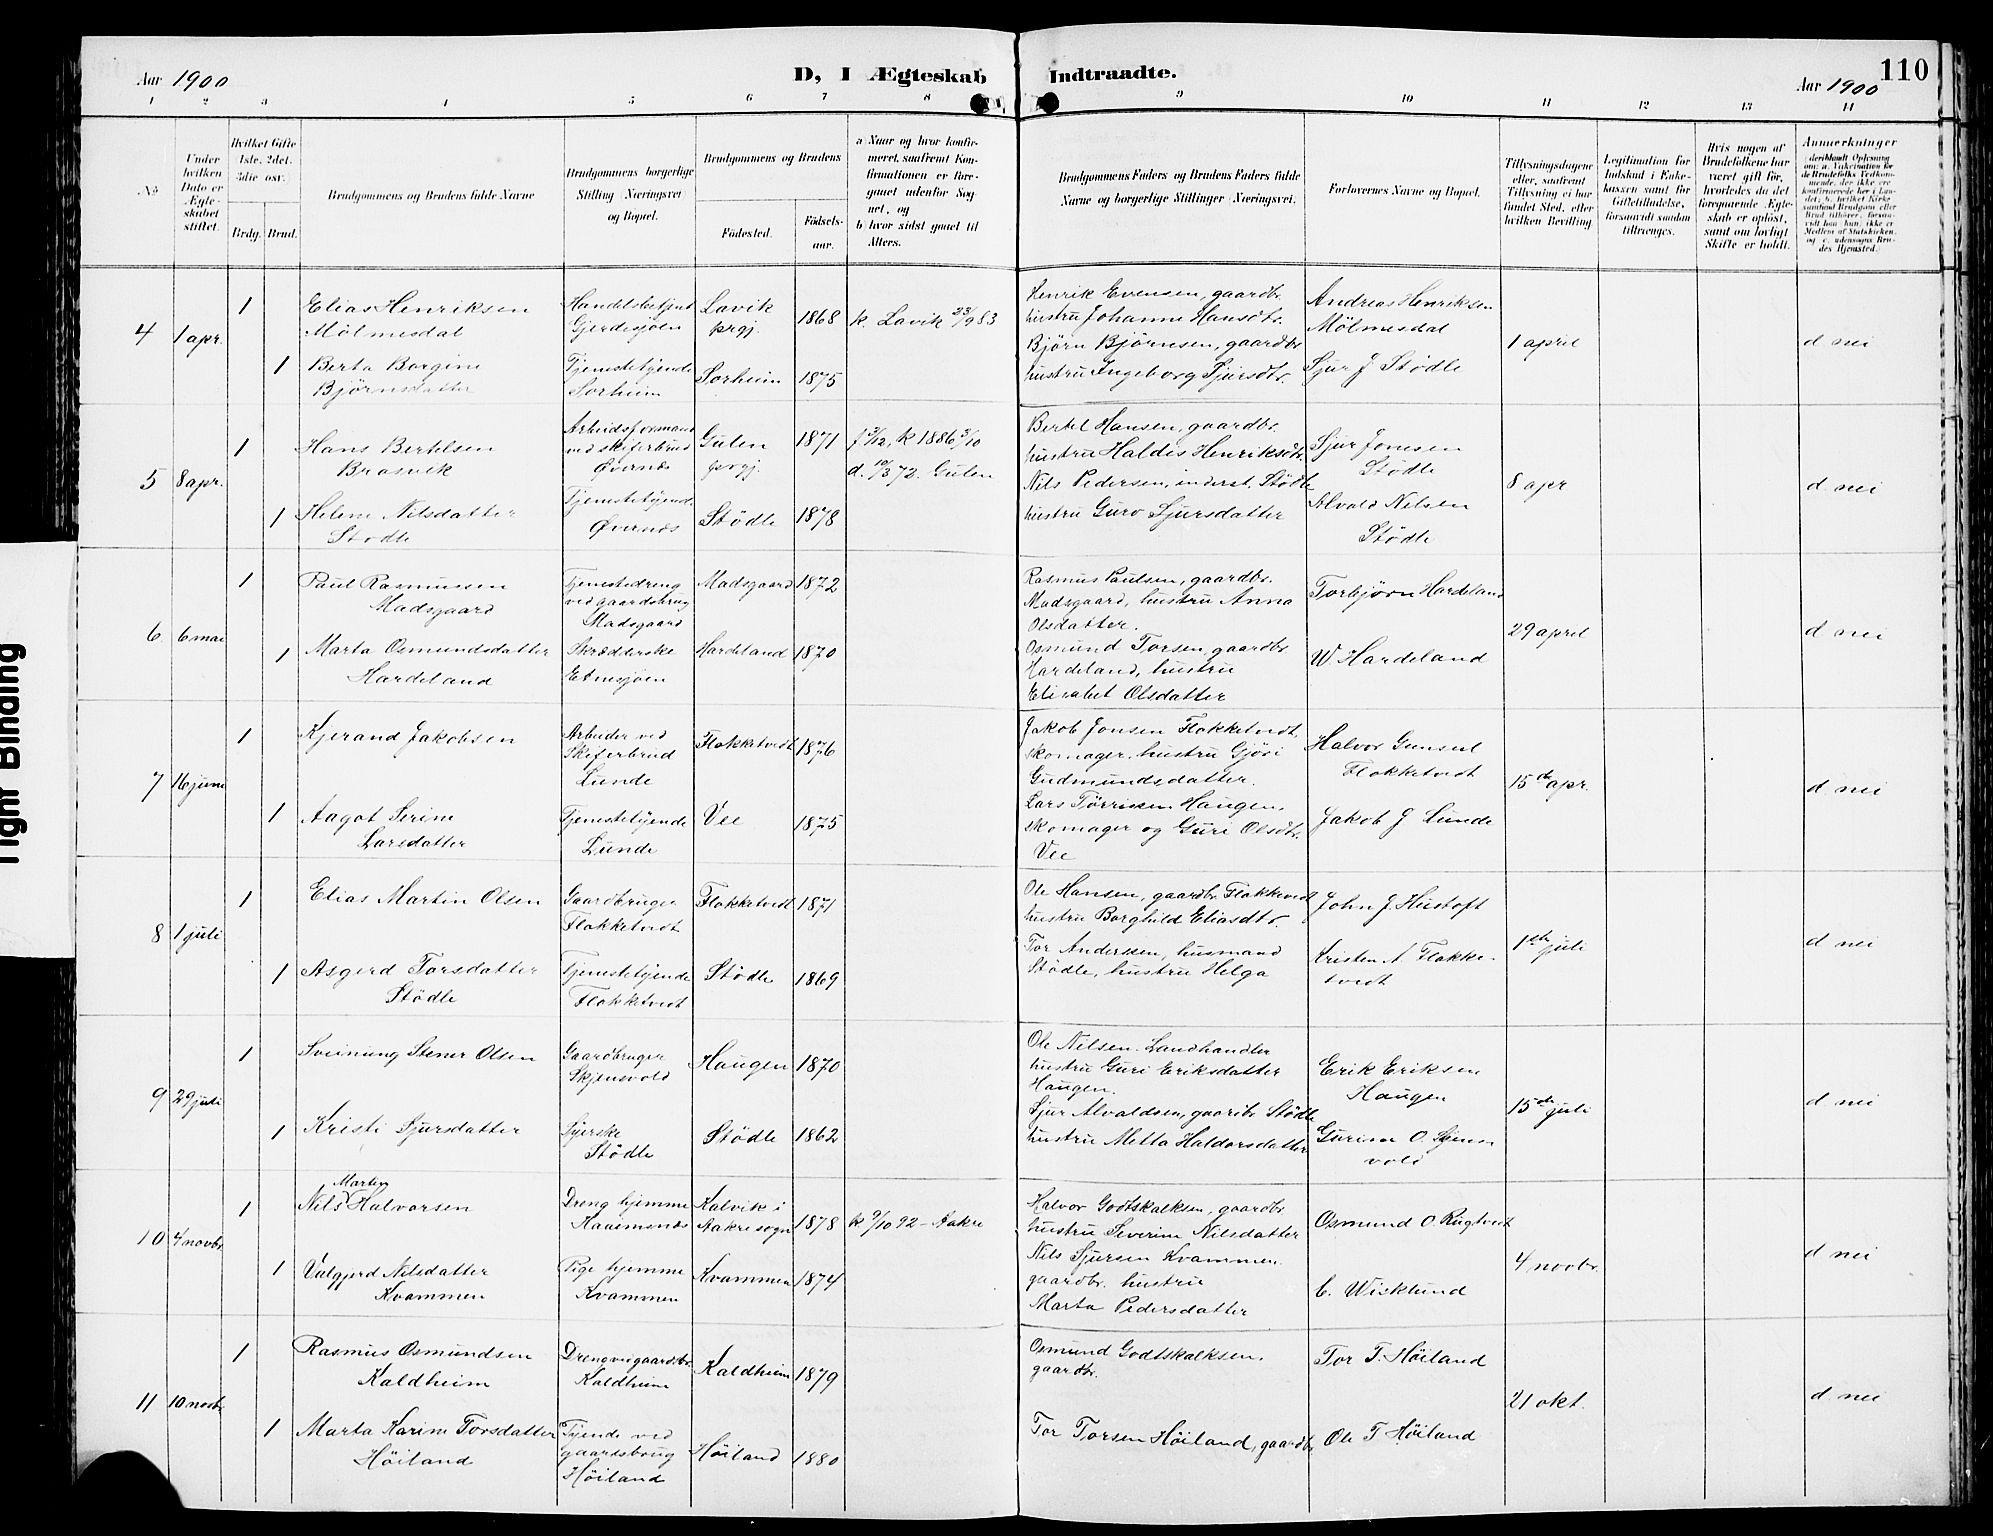 Aar 1900
D, I Ægteskab Indtraadte.
Aar 1900
110
1 2 3 4 5 6 7 8 9 10 11 12 13 14
No
Under hvilken Dato er Ægteskabet stiftet.
Hvilket Gifte 1ste, 2det, 3die osv.
Brdg. Brud.
Brudgommens og Brudens fulde Navne
Brudgommens borgerlige Stilling (Næringsvei og Bopæl.
Brudgommens og Brudens
Fødested.
Fødselsaar.
a Naar og hvor konfirmeret, saafremt Konfirmationen er foregaaet udenfor Sognet, og
b hvor sidst gaaet til Alters.
Brudgommens Faders og Brudens Faders fulde Navne og borgerlige Stillinger (Næringsvei.
Forlovernes Navne og Bopæl.
Tillysningsdagene eller, saafremt Tillysning ei har fundet Sted, efter hvilken Bevilling
Legitimation for Indskud i Enkekassen samt for Giftetilladelse, forsaavidt saadan tiltrænges.
Hvis nogen af Brudefolkene har været gift før, hvorledes da det foregaaende Ægteskab er opløst, samt om lovligt Skifte er holdt.
Anmerkninger
4 1 apr.
1 Elias Henriksen
Mölmesdal
Handelsbetjent
Gjerdesjøen
Lavik
prgj.
1868
k. Lavik 23/9 83
Henrik Evensen, gaardbr.
hustru Johanne Hansdtr.
Andreas Henriksen
Mölmesdal
1 april
d nei
1 Berta Borgine
Björnsdatter
Tjenestetyende
Sørheim
Sørheim
1875
Björn Björnsen, gaardbr.
hustru Ingeborg Sjursdtr.
Sjur J Stödle
5 8 apr.
1 Hans Bertelsen
Brosvik
Arbeidsformand
ved skiferbrud
Øvernæs
Gulen
prgj.
1871
f 3/12, k 1886 3/10
d. 10/3 72. Gulen
Bertel Hansen, gaardbr.
hustru Haldis Henriksdtr.
Sjur Jonesen
Stödle
8 apr
d nei
1 Helene Nilsdatter
Stödle
Tjenestetyende
Øvernæs
Stödle
1878
Nils Pedersen, inderst. Stödle
hustru Guro Sjursdatter
Alvald Nilsen
Stödle
6 6 mai
1 Paul Rasmussen
Madsgaard
Tjenestedreng
ved gaardsbrug
Madsgaard
Madsgaard
1872
Rasmus Paulsen, gaardbr.
Madsgaard, hustru Anna
Olsdatter.
Torbjørn Hardeland
29 april
d nei
1 Marta Osmundsdatter
Hardeland
Skrædderske
Etnesjøen
Hardeland
1870
Osmund Torsen, gaardbr.
Hardeland, hustru
Elisabet Olsdatter
W Hardeland
7 16 juni
1 Kjerand Jakobsen
Arbeider ved
Skiferbrud
Lunde
Flokketvedt
1876
Jakob Jonsen Flokketvedt,
skomager, hustru Gjöri
Gudmundsdatter.
Halvor Gunsul
Flokketvedt
15de apr.
d nei
1 Aagot Serine
Larsdatter
Tjenestetyende
Lunde
Vee
1875
Lars Tørrisen Haugen,
skomager og Guri Olsdtr.
Vee
Jakob J Lunde
8 1 juli
1 Elias Martin Olsen
Gaardbruger
Flokketvedt
Flokketvedt
1871
Ole Hansen, gaardbr. Flokketvedt
hustru Borghild Eliasdtr.
John J Hustoft
1ste juli
d nei
1 Asgerd Torsdatter
Stödle
Tjenestetyende
Flokketvedt
Stödle
1869
Tor Anderssen, husmand
Stödle, hustru Helga
Cristen A Flokke-
tvedt
9 29 juli
1 Sveinung Stener Olsen
Gaardbruger
Skjensvold
Haugen
1870
Ole Nilsen. Landhandler
hustru Guri Eriksdatter
Haugen.
Erik Eriksen
Haugen
15de juli
d nei
1 Kristi Sjursdatter
Syerske
Stödle
Stödle
1862
Sjur Alvaldsen, gaardbr. Stödle
hustru Metta Haldorsdatter
Gurinus O. Sjens-
vold
10 4 novbr.
1 Nils Martin Halvorsen
Dreng hjemme
Kaarenæs
Kalvik i
Aakre sogn
1878
k 9/10 92 - Aakre
Halvor Godtskalksen, gaardbr.
hustru Severine Nilsdatter
Osmund O. Rygtvedt
4 novbr.
d nei
1 Valgjerd Nilsdatter
Kvammen
Pige hjemme
Kvammen
Kvammen
1874
Nils Sjursen Kvammen.
gaardbr. hustru
Marta Pedersdatter
C. Wisklund
11 10 novbr.
1 Rasmus Osmundsen
Kaldheim
Dreng ved gaardsbr.
Kaldheim
Kaldheim
1879
Osmund Godtskalksen.
gaardbr.
Tor T. Höiland
21 okt.
d nei
1 Marta Karine Torsdatter
Höiland
Tyende ved
gaardsbrug
Höiland
Höiland
1880
Tor Torsen Höiland, gaardbr.
Ole T Höiland
Tight Binding